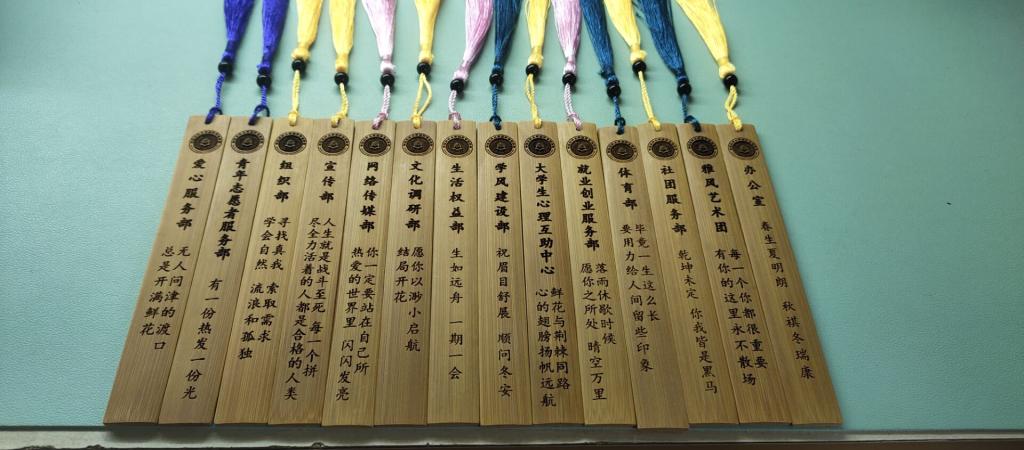 爱心服务部
无人问津的渡口
总是开满鲜花
青年志愿者服务部
有一份热发一份光
组织部
寻找真我 索取需求
学会自然 流浪和孤独
宣传部
人生就是战斗至死 每一个拼
尽全力活着的人都是合格的人类
网络传媒部
你一定要站在自己所
热爱的世界里 闪闪发亮
文化调研部
愿你以渺小启航
结局开花
生活权益部
生如远舟 一期一会
学风建设部
祝眉目舒展 顺问冬安
大学生心理互助中心
鲜花与荆棘同路
心的翅膀扬帆远航
就业创业服务部
落雨休歇时候
愿你之所处 晴空万里
体育部
毕竟一生这么长
要用力给人间留些印象
社团服务部
乾坤未定 你我皆是黑马
雅风艺术团
每一个你都很重要
有你的这里永不散场
办公室
春生夏明朗 秋祺冬瑞康